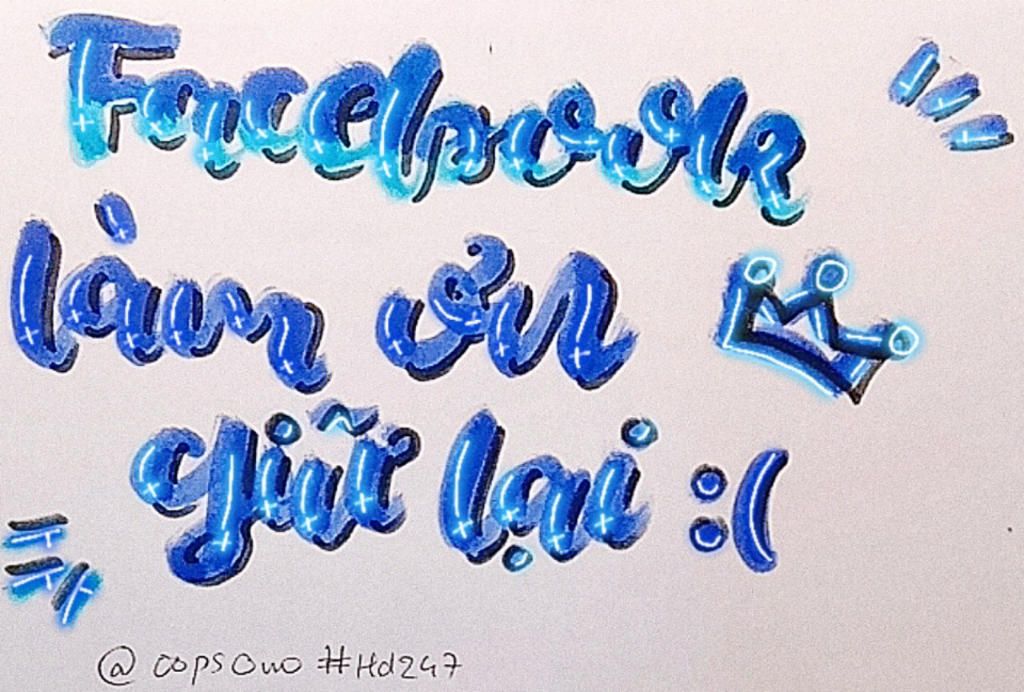 Facebook
làm ơn
giữ lại :(
@oopsOno #Hd247